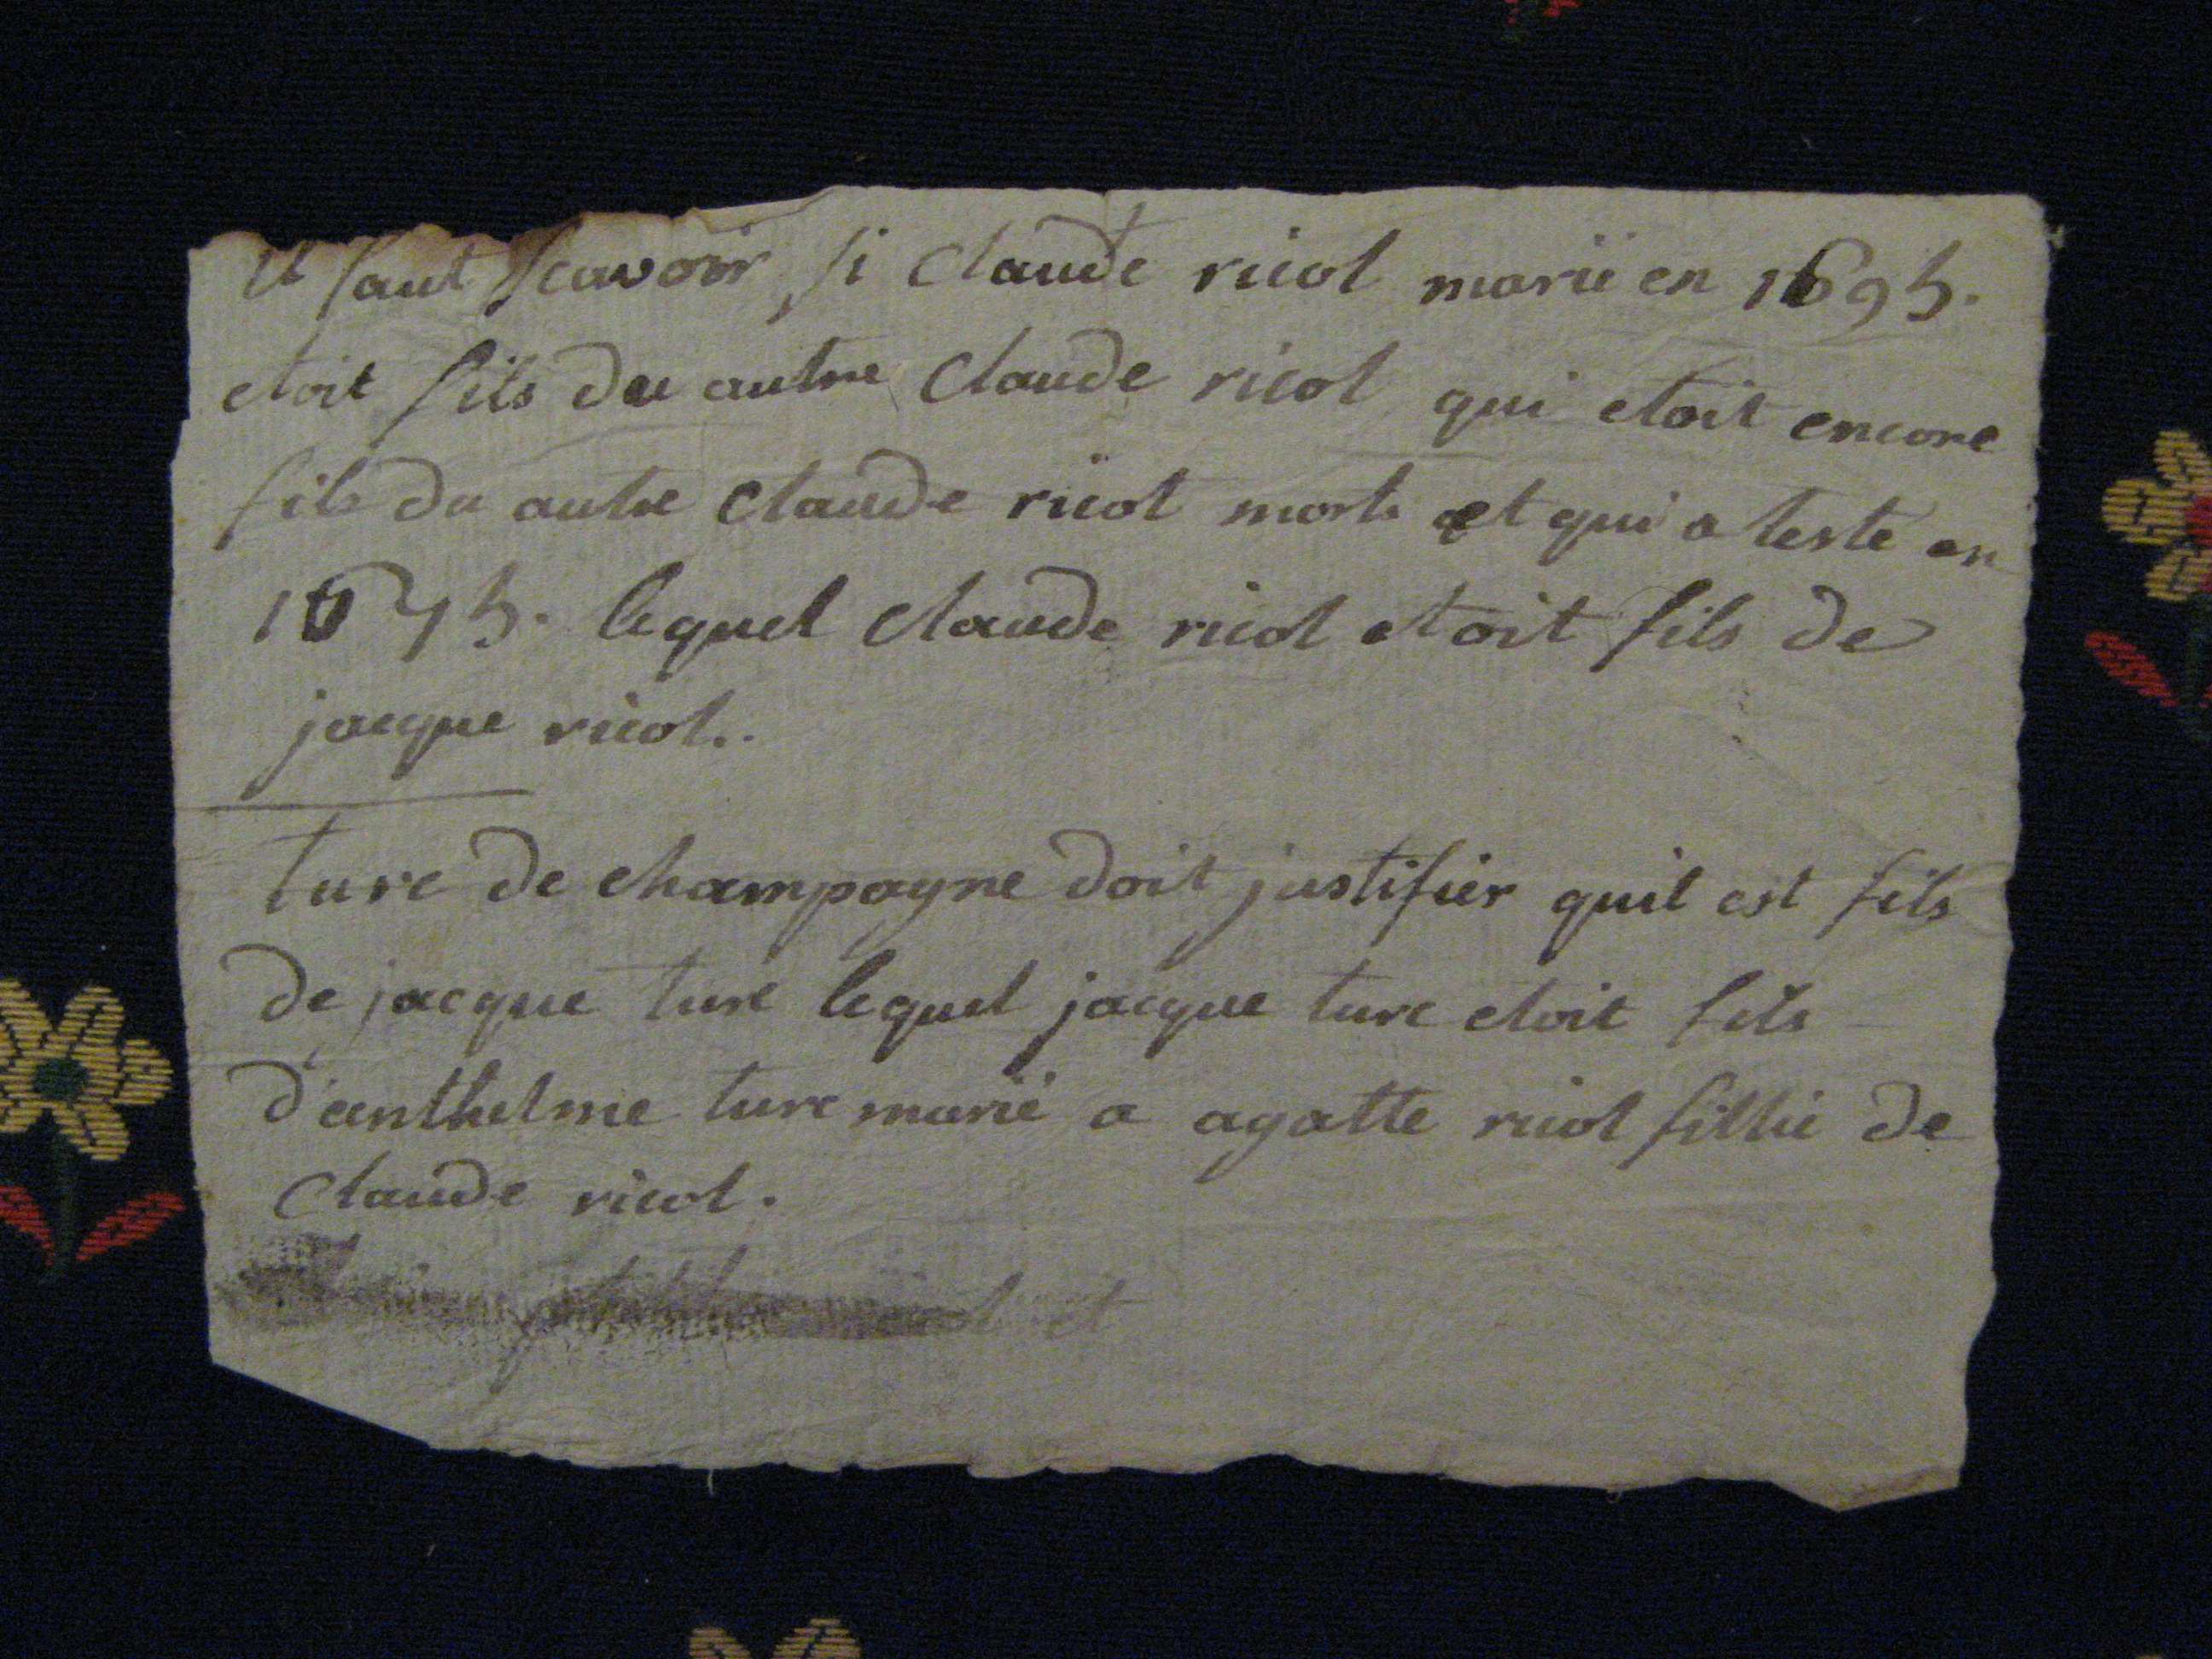 il faut scavoir si Claude ricol marié en 1695.
etoit fils du autre Claude ricol qui etoit encore
fils du autre Claude ricol morts et qui a testé en
1675. lequel Claude ricol etoit fils de
jacque ricol..
turc de champagne doit justifier quil est fils
de jacque turc lequel jacque turc etoit fils
d'anthelme turc marié a agatte ricol fillie de
Claude ricol.
et